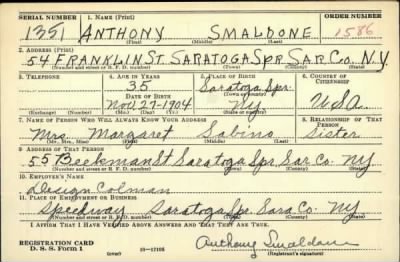 SERIAL NUMBER 1. NAME (Print) ORDER NUMBER
1351 ANTHONY SMALDONE 1586
(First) (Middle) (Last)
2. ADDRESS (Print)
54 FRANKLIN ST. SARATOGA SPR. SAR. CO. N.Y.
(Number and street or R. F. D. number) (Town) (County) (State)
3. TELEPHONE 4. AGE IN YEARS 5. PLACE OF BIRTH 6. COUNTRY OF CITIZENSHIP
35 Saratoga Spr.
DATE OF BIRTH (Town or county)
Nov. 27-1904 NY U.S.A.
(Exchange) (Number) (Mo.) (Day) (Yr.) (State or country)
7. NAME OF PERSON WHO WILL ALWAYS KNOW YOUR ADDRESS 8. RELATIONSHIP OF THAT PERSON
Mrs. Margaret Sabino Sister
(Mr., Mrs., Miss) (First) (Middle) (Last)
9. ADDRESS OF THAT PERSON
55 Beekman St Saratoga Spr. Sar Co. NY
(Number and street or R. F. D. number) (Town) (County) (State)
10. EMPLOYER'S NAME
Design Colman
11. PLACE OF EMPLOYMENT OR BUSINESS
Speedway Saratoga Spr Sara Co. NY
(Number and street or R. F. D. number) (Town) (County) (State)
I AFFIRM THAT I HAVE VERIFIED ABOVE ANSWERS AND THAT THEY ARE TRUE.
REGISTRATION CARD
D. S. S. FORM 1 (over) 16-17105 Anthony Smaldone
(Registrant's signature)